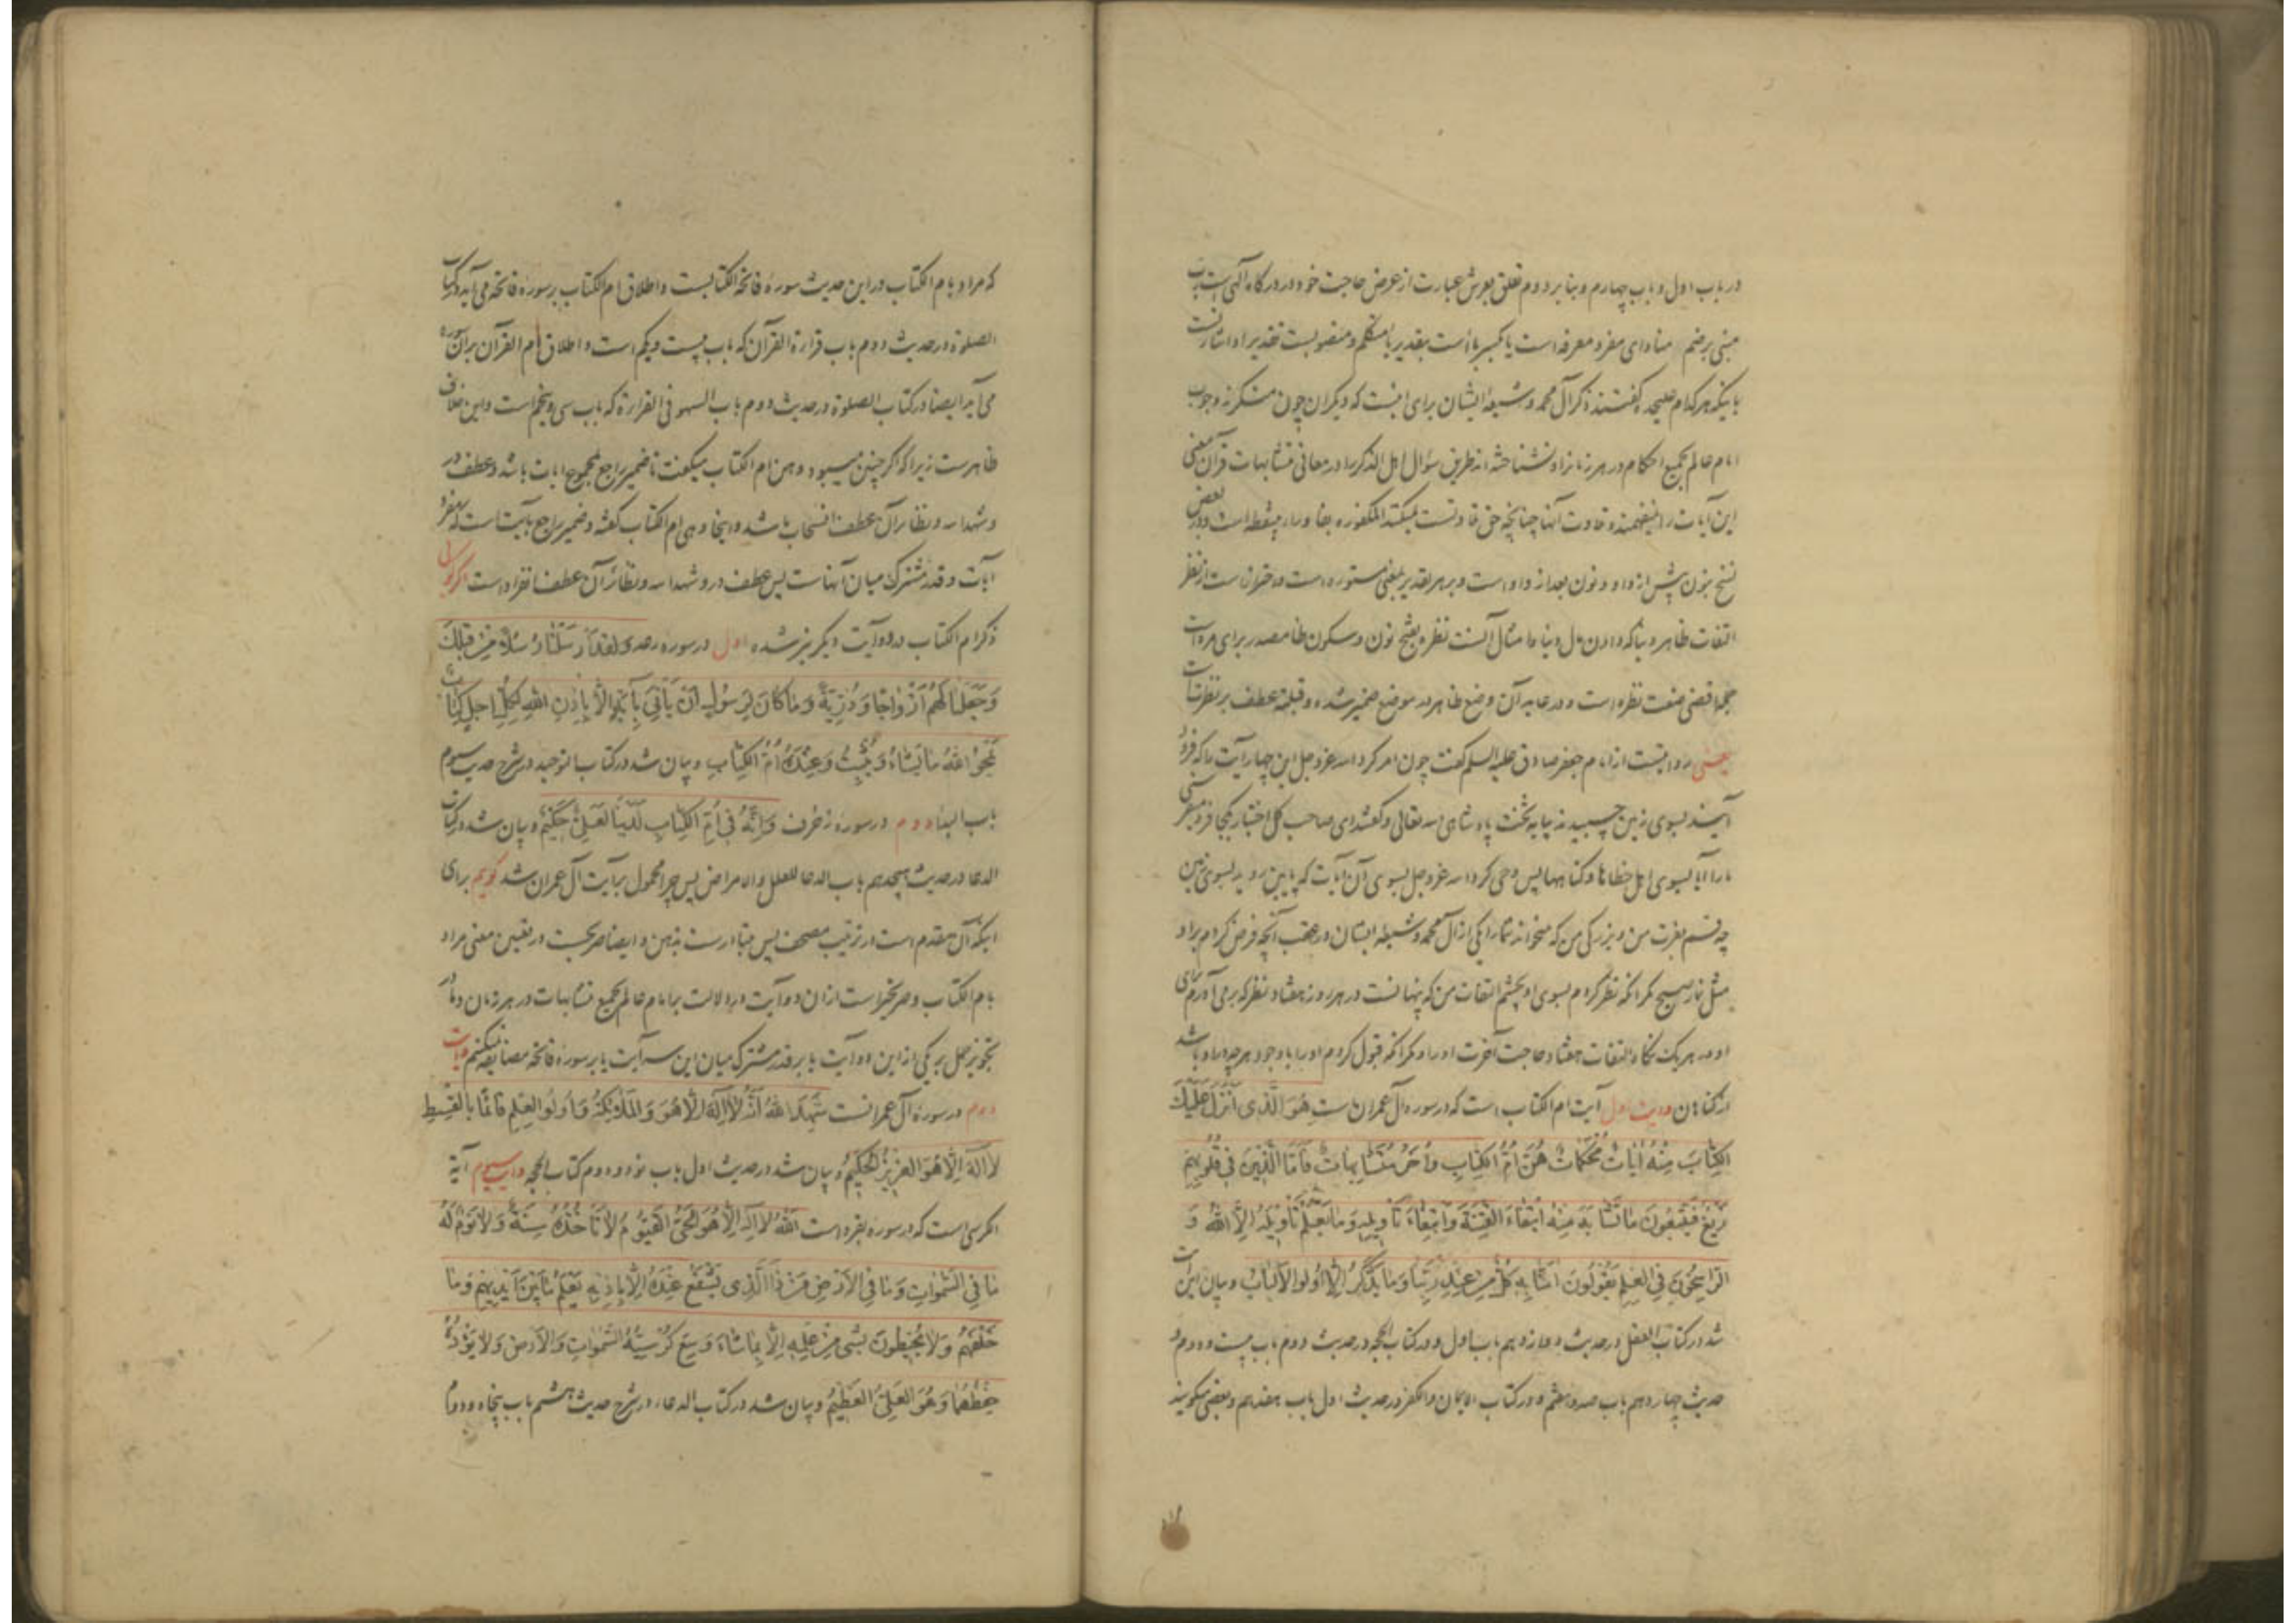 در باب اول و باب چهارم و بنا بر دوم تعلق بعرش عبارت از عرض حاجت خود در درگاه الهی است یا رب
مبنی بر ضم منادای مفرد معرفه است یا بکسر با است بتقدیر یا متکلم و منصوبست تقدیرا و اشارتست
باینکه هر کدام علیحده گفتند ذکر آل محمد و شیعه ایشان برای اینست که دیگران چون منکرند وجوب
امام عالم بجمیع احکام در هر زمان را و نشناخته اند طریق سؤال اهل الذکر را در معانی متشابهات قرآن معنی
این آیات را نمیفهمند و تلاوت آنها چنانچه حق تلاوتست نمیکنند المکنونه بفا و را بی نقطه است و در بعض
نسخ بنون پیش از واو و نون بعد از واو است و بر هر تقدیر بمعنی مستوره است و احترازست از نظر
التفات ظاهر دنیا که دادن مال دنیا و امثال آنست نظره بفتح نون و سکون ظا مصدر برای مره است
جمله اقضی صفت نظره است و در عایه آن وضع ظاهر در موضع ضمیر شده و قبلته عطف بر نظرتست
یعنی روایتست از امام جعفر صادق علیه السلم گفت چون امر کرد الله عز وجل این چهار آیت را که فرود
آیند بسوی زمین چسبیدند بپایه تخت پادشاهی الله تعالی و گفتند ای صاحب کل اختیار بکجا فرو میفرستی
ما را آیا بسوی اهل خطاها و گناهها پس وحی کرد الله عز وجل بسوی آن آیات که پایین روید بسوی زمین
چه قسم بعزت من و بزرگی من که نمیخواند شما را یکی از آل محمد و شیعه ایشان در عقب آنچه فرض کردم بر او
مثل نماز صبح مگر آنکه نظر کردم بسوی او بچشم التفات من که پنهانست در هر روز هفتاد نظر که برمی آورم برای
او در هر یک نگاه التفات هفتاد حاجت آخرت او را و مگر آنکه قبول کردم او را با وجود هر چه او را باشد
از گناهان و آیت اول آیت ام الکتاب است که در سوره آل عمران ست هُوَ الَّذی اَنْزَلَ عَلَیْکَ
الکِتٰابَ مِنْهُ اٰیٰاتٌ مُحْکَمٰاتٌ هُنَّ اُمُّ الکِتٰابِ وَاُخَرُ مُتَشٰابِهٰاتٌ فَاَمَّا الَّذینَ فی قُلُوبِهِمْ
زَیْغٌ فَیَتَّبِعُونَ مٰا تَشٰابَهَ مِنْهُ ابْتِغٰاءَ الْفِتْنَةِ وَابْتِغٰاءَ تَاْویلِهِ وَمٰا یَعْلَمُ تَاْویلَهُ اِلَّا اللّٰهُ وَ
الرّٰاسِخُونَ فِی العِلْمِ یَقُولُونَ اٰمَنّٰا بِهِ کُلٌّ مِنْ عِنْدِ رَبِّنٰا وَمٰا یَذَّکَّرُ اِلّٰا اُولُوا الاَلْبٰابِ و بیان این آیت
شد در کتاب العقل در حدیث دوازدهم باب اول و در کتاب الحجه در حدیث دوم باب بیست و دوم و
حدیث چهاردهم باب صد و هفتم و در کتاب الایمان و الکفر در حدیث اول باب هفدهم و بعضی میگویند
که مراد بام الکتاب در این حدیث سوره فاتحة الکتابست و اطلاق ام الکتاب بر سوره فاتحه می آید در کتاب
الصلوة در حدیث دوم باب قراءة القرآن که باب بیست و یکم است و اطلاق ام القرآن بر آن سوره
می آید ایضا در کتاب الصلوة در حدیث دوم باب السهو فی القراءة که باب سی و پنجم است و این خلاف
ظاهرست زیرا که اگر چنین میبود و هن ام الکتاب میگفت تا ضمیر راجع بمجموع ایات باشد و عطف در
و شهد الله و نظایر آن عطف انسحاب باشد و اینجا و هی ام الکتاب گفته و ضمیر راجع بآیت است که مفرد
آیات و قدر مشترک میان آنهاست پس عطف در و شهد الله و نظائر آن عطف انفراد است اگر گویی
ذکر ام الکتاب در دو آیت دیگر نیز شده اول در سوره رعد وَلَقَدْ اَرْسَلْنٰا رُسُلًا مِنْ قَبْلِکَ
وَجَعَلْنٰا لَهُمْ اَزْوٰاجًا وَذُرِّیَّةً وَمٰا کٰانَ لِرَسُولٍ اَنْ یَاْتِیَ بِاٰیَةٍ اِلّٰا بِاِذْنِ اللّٰهِ لِکُلِّ اَجَلٍ کِتٰابٌ
یَمْحُو اللّٰهُ مٰا یَشٰاءُ وَیُثْبِتُ وَعِنْدَهُ اُمُّ الْکِتٰابِ و بیان شد در کتاب التوحید در شرح حدیث سوم
باب البداء دوم در سوره زخرف وَاِنَّهُ فی اُمِّ الکِتٰابِ لَدَیْنٰا لَعَلِیٌّ حَکیمٌ و بیان شد در کتاب
الدعا در حدیث هیجدهم باب الدعا للعلل و الامراض پس چرا محمول بر آیت آل عمران شد گویم برای
اینکه آن مقدم است در ترتیب مصحف پس متبادرست بذهن و ایضا صریحست در تعیین معنی مراد
بام الکتاب و صریحتر است از آن دو آیت در دلالت بر امام عالم بجمیع متشابهات در هر زمان و ما در
تجویز حمل بر یکی از این دو آیت یا بر قدر مشترک میان این سه آیت یا بر سوره فاتحه مضایقه نمیکنیم و آیت
دوم در سوره آل عمرانست شَهِدَ اللّٰهُ اَنَّهُ لٰا اِلٰهَ اِلّٰا هُوَ وَالْمَلٰئِکَةُ وَاُولُوا العِلْمِ قٰائِمًا بِالْقِسْطِ
لٰا اِلٰهَ اِلّٰا هُوَ العَزیزُ الْحَکیمُ و بیان شد در حدیث اول باب نود و دوم کتاب الحجه و آیت سیوم آیة
الکرسی است که در سوره بقره است اَللّٰهُ لٰا اِلٰهَ اِلّٰا هُوَ الْحَیُّ الْقَیُّومُ لٰا تَاْخُذُهُ سِنَةٌ وَلٰا نَوْمٌ لَهُ
مٰا فِی السَّمٰوٰاتِ وَمٰا فِی الاَرْضِ مَنْ ذَا الَّذی یَشْفَعُ عِنْدَهُ اِلّٰا بِاِذْنِهِ یَعْلَمُ مٰا بَیْنَ اَیْدِیهِمْ وَمٰا
خَلْفَهُمْ وَلٰا یُحیطُونَ بِشَیءٍ مِنْ عِلْمِهِ اِلّٰا بِمٰا شٰاءَ وَسِعَ کُرْسِیُّهُ السَّمٰوٰاتِ وَالْاَرْضَ وَلٰا یَؤُدُهُ
حِفْظُهُمٰا وَهُوَ العَلِیُّ العَظیمُ و بیان شد در کتاب الدعاء در شرح حدیث هشتم باب پنجاه و دوم